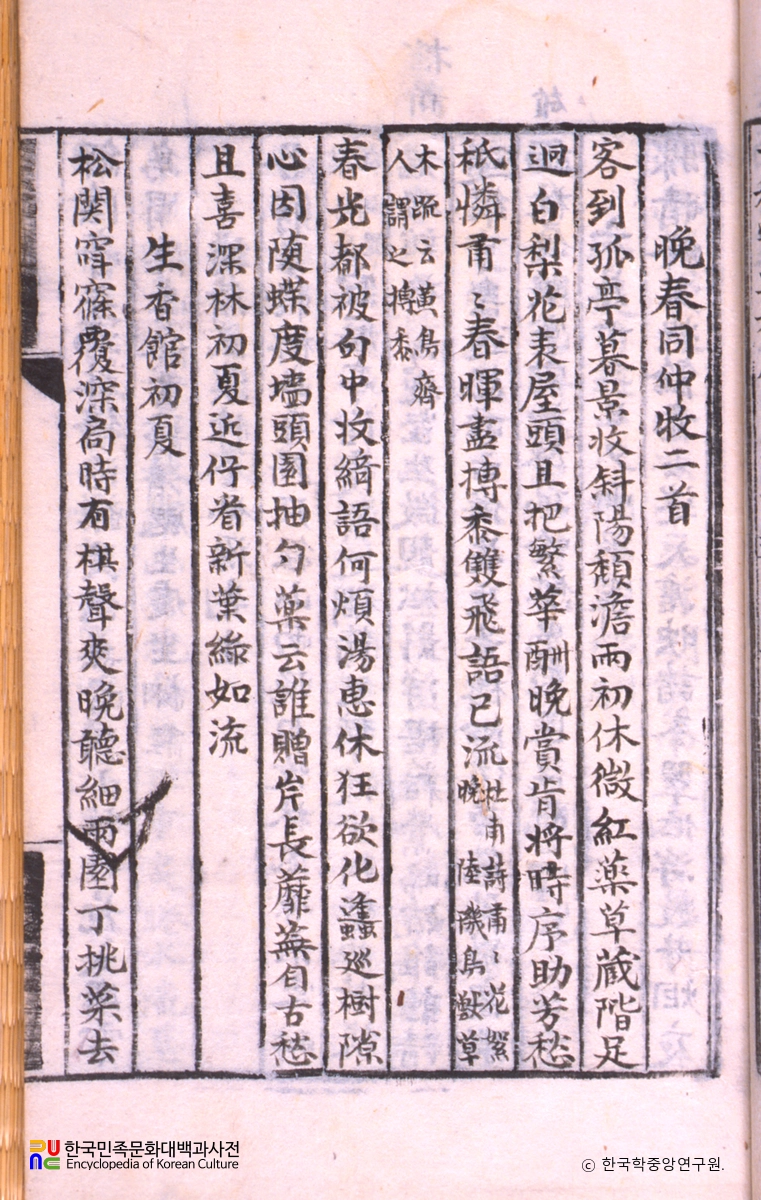 晩春同仲牧二首
客到孤亭暮景收斜陽頹澹雨初休微紅藥草蔵階足
迥白梨花表屋頭且把繁華酬晚賞肯將時序助芳愁
秖憐甫〻春暉盡搏黍雙飛語已流杜甫詩甫〻花絮晚 陸璣鳥獸草
木疏云黃鳥齊人謂之搏黍
春光都被句中收綺語何煩湯惠休狂欲化蠭巡樹隙
心因随蝶度墻頭園抽勺藥云誰贈岸長蘼蕪自古愁
且喜深林初夏近佇看新葉綠如流
生香館初夏
松関窅窱覆深扃時有棋聲爽晚聽細雨園丁挑菜去
한국민족문화대백과사전
Encyclopedia of Korean Culture
© 한국학중앙연구원.